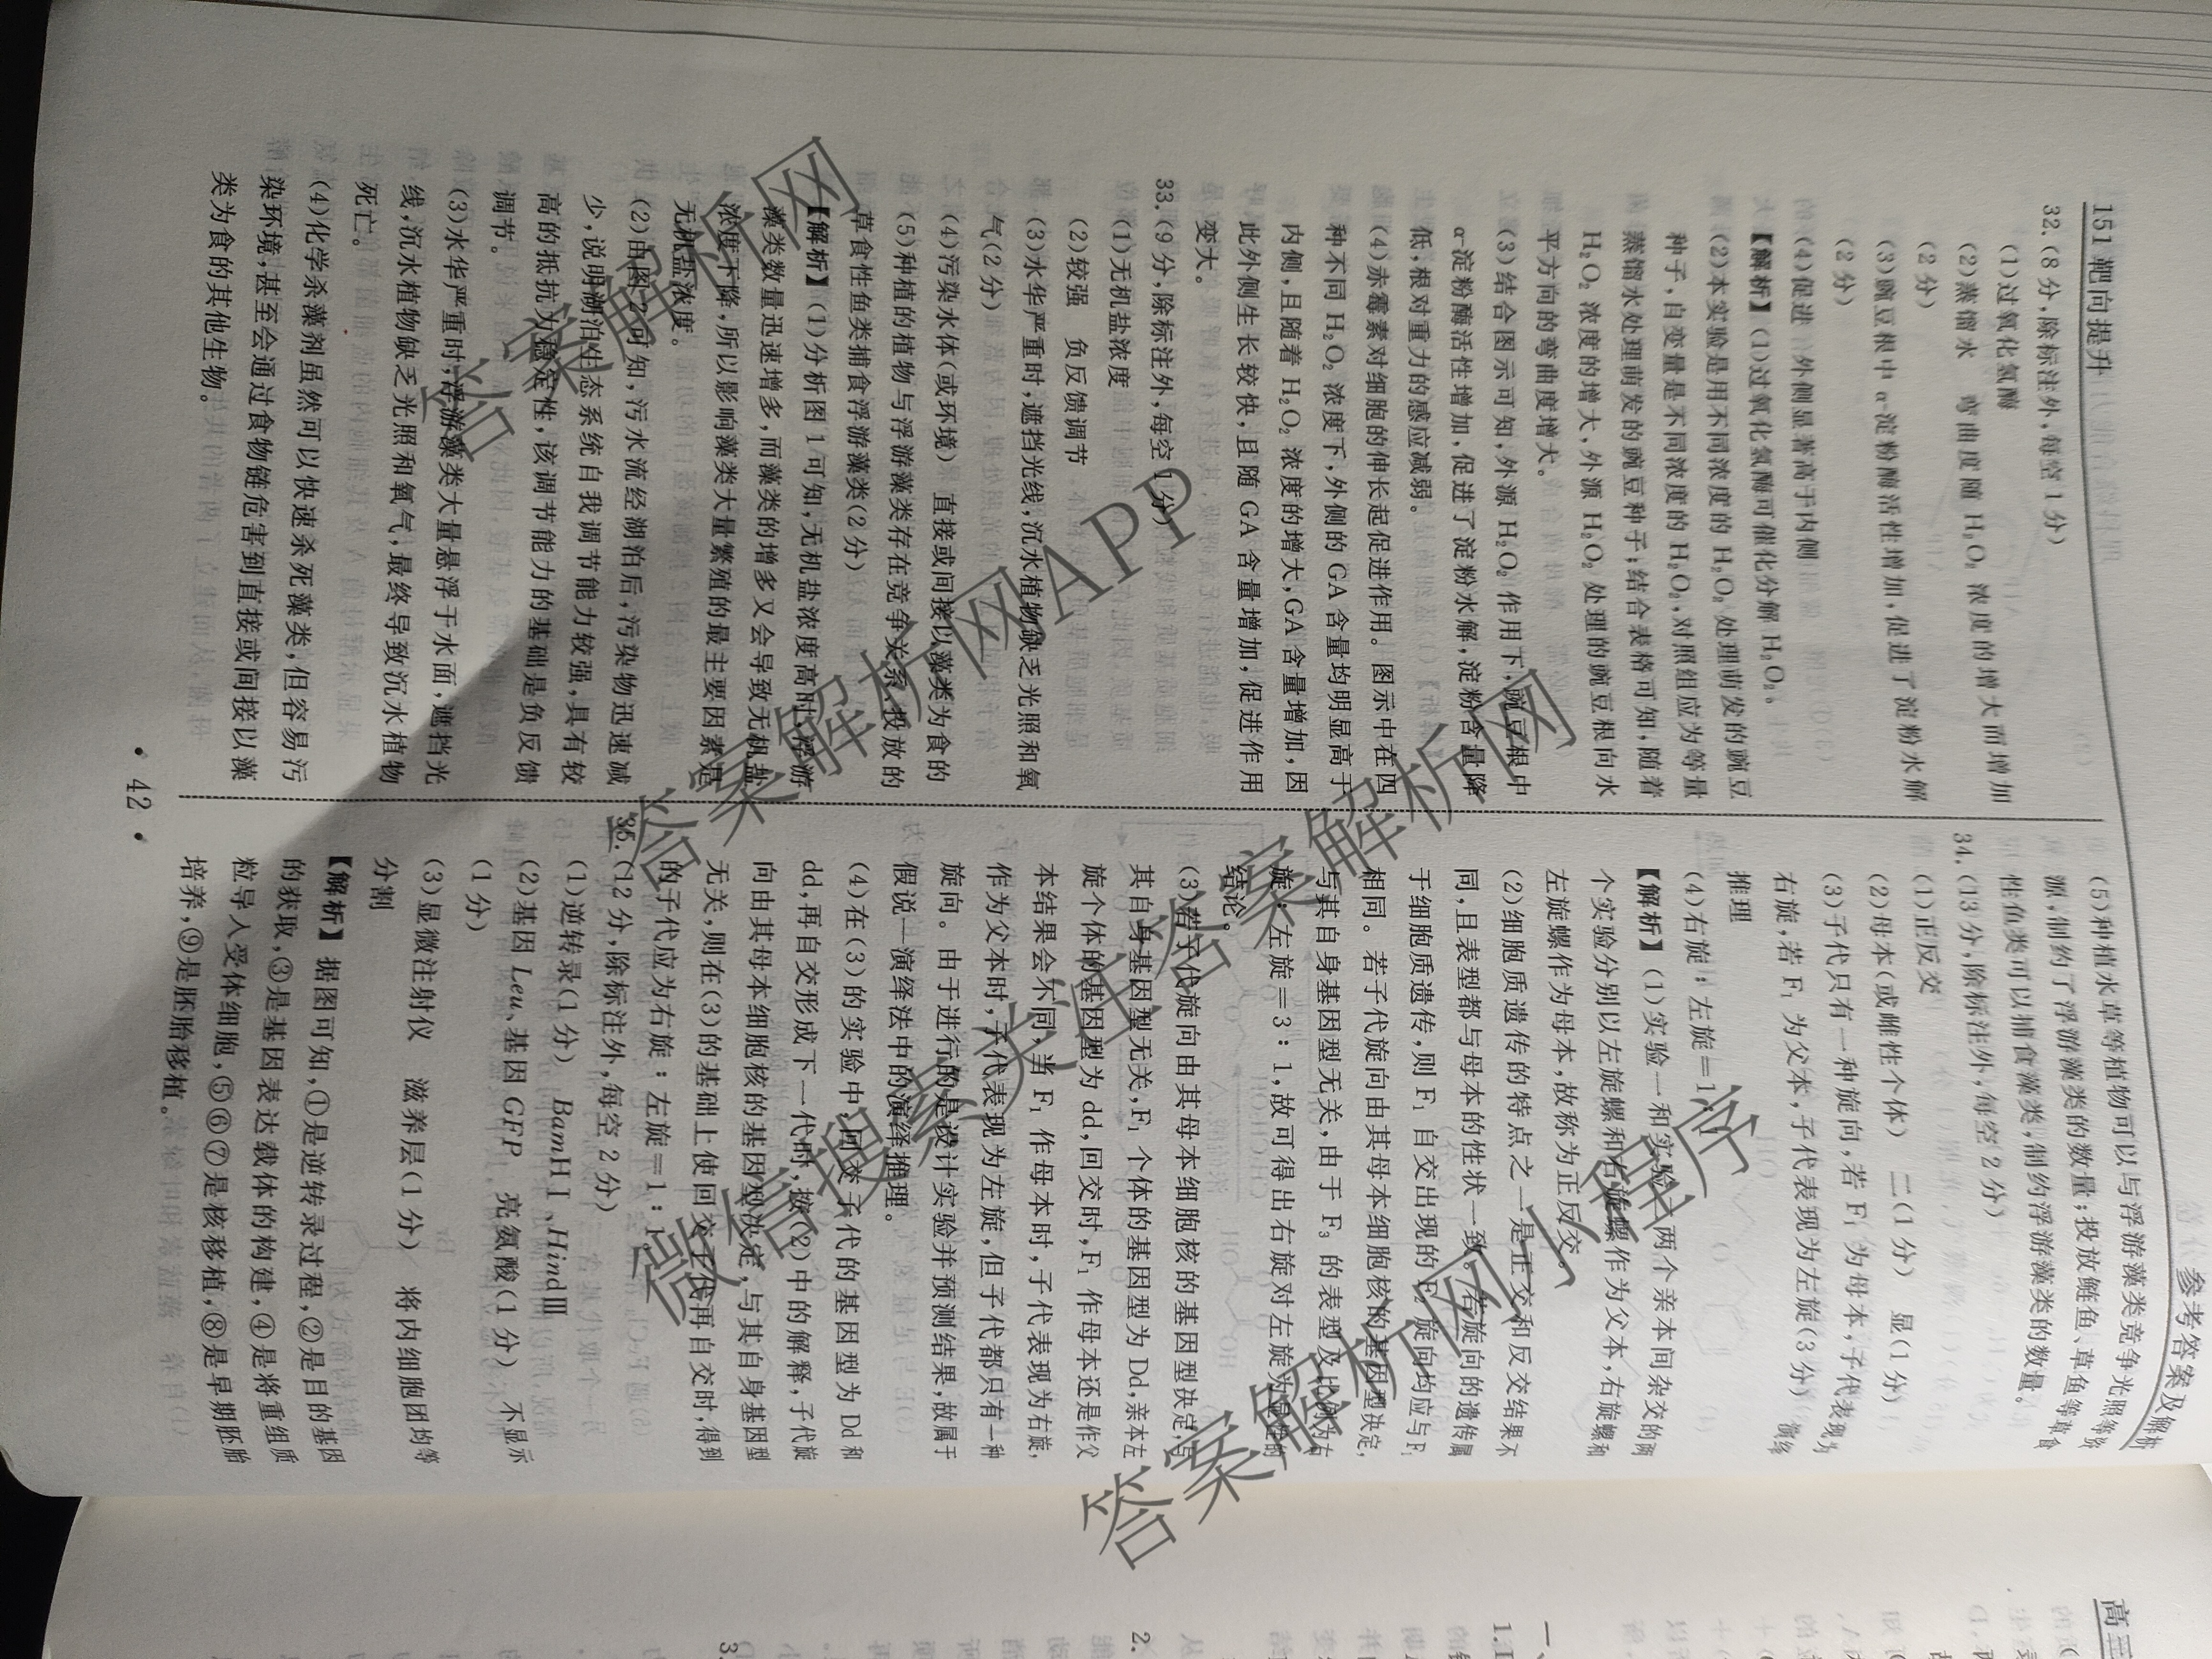 151 靶向提升
参考答案及解析
32.(8分,除标注外,每空1分)
(1)过氧化氢酶
(2)蒸馏水 弯曲度随 H₂O₂ 浓度的增大而增加
(2分)
(3)豌豆根中 α-淀粉酶活性增加,促进了淀粉水解
(2分)
(4)促进 外侧显著高于内侧
【解析】(1)过氧化氢酶可催化分解 H₂O₂。
(2)本实验是用不同浓度的 H₂O₂ 处理萌发的豌豆
种子,自变量是不同浓度的 H₂O₂,对照组应为等量
蒸馏水处理萌发的豌豆种子;结合表格可知,随着
H₂O₂ 浓度的增大,外源 H₂O₂ 处理的豌豆根向水
平方向的弯曲度增大。
(3)结合图示可知,外源 H₂O₂ 作用下,豌豆根中
α-淀粉酶活性增加,促进了淀粉水解,淀粉含量降
低,根对重力的感应减弱。
(4)赤霉素对细胞的伸长起促进作用。图示中在四
种不同 H₂O₂ 浓度下,外侧的 GA 含量均明显高于
内侧,且随着 H₂O₂ 浓度的增大,GA 含量增加,因
此外侧生长较快,且随 GA 含量增加,促进作用
变大。
33.(9分,除标注外,每空1分)
(1)无机盐浓度
(2)较强 负反馈调节
(3)水华严重时,遮挡光线,沉水植物缺乏光照和氧
气(2分)
(4)污染水体(或环境) 直接或间接以藻类为食的
(5)种植的植物与浮游藻类存在竞争关系,投放的
草食性鱼类捕食浮游藻类(2分)
【解析】(1)分析图1可知,无机盐浓度高时,浮游
藻类数量迅速增多,而藻类的增多又会导致无机盐
浓度下降,所以影响藻类大量繁殖的最主要因素是
无机盐浓度。
(2)由图2可知,污水流经湖泊后,污染物迅速减
少,说明湖泊生态系统自我调节能力较强,具有较
高的抵抗力稳定性,该调节能力的基础是负反馈
调节。
(3)水华严重时,浮游藻类大量悬浮于水面,遮挡光
线,沉水植物缺乏光照和氧气,最终导致沉水植物
死亡。
(4)化学杀藻剂虽然可以快速杀死藻类,但容易污
染环境,甚至会通过食物链危害到直接或间接以藻
类为食的其他生物。
(5)种植水草等植物可以与浮游藻类竞争光照等资
源,制约了浮游藻类的数量;投放鲢鱼、草鱼等草食
性鱼类可以捕食藻类,制约浮游藻类的数量。
34.(13分,除标注外,每空2分)
(1)正反交
(2)母本(或雌性个体) 二(1分) 显(1分)
(3)子代只有一种旋向,若 F₁ 为母本,子代表现为
右旋,若 F₁ 为父本,子代表现为左旋(3分) 演绎
推理
(4)右旋:左旋=1:1
【解析】(1)实验一和实验二两个亲本间杂交的两
个实验分别以左旋螺和右旋螺作为父本,右旋螺和
左旋螺作为母本,故称为正反交。
(2)细胞质遗传的特点之一是正交和反交结果不
同,且表型都与母本的性状一致。若旋向的遗传属
于细胞质遗传,则 F₁ 自交出现的 F₂ 旋向均应与 F₁
相同。若子代旋向由其母本细胞核的基因型决定,
与其自身基因型无关,由于 F₃ 的表型及比例为右
旋:左旋=3:1,故可得出右旋对左旋为显性的
结论。
(3)若子代旋向由其母本细胞核的基因型决定,与
其自身基因型无关,F₁ 个体的基因型为 Dd,亲本左
旋个体的基因型为 dd,回交时,F₁ 作母本还是作父
本结果会不同,当 F₁ 作母本时,子代表现为右旋,
作为父本时,子代表现为左旋,但子代都只有一种
旋向。由于进行的是设计实验并预测结果,故属于
假说—演绎法中的演绎推理。
(4)在(3)的实验中,回交子代的基因型为 Dd 和
dd,再自交形成下一代时,按(2)中的解释,子代旋
向由其母本细胞核的基因型决定,与其自身基因型
无关,则在(3)的基础上使回交子代再自交时,得到
的子代应为右旋:左旋=1:1。
35.(12分,除标注外,每空2分)
(1)逆转录(1分) BamH Ⅰ、Hind Ⅲ
(2)基因 Leu、基因 GFP 亮氨酸(1分) 不显示
(1分)
(3)显微注射仪 滋养层(1分) 将内细胞团均等
分割
【解析】据图可知,①是逆转录过程,②是目的基因
的获取,③是基因表达载体的构建,④是将重组质
粒导入受体细胞,⑤⑥⑦是核移植,⑧是早期胚胎
培养,⑨是胚胎移植。
· 42 ·
答案解析网
答案解析网APP
微信搜索关注答案解析网
答案解析网小程序
高三
一、
1.D
2.
3.